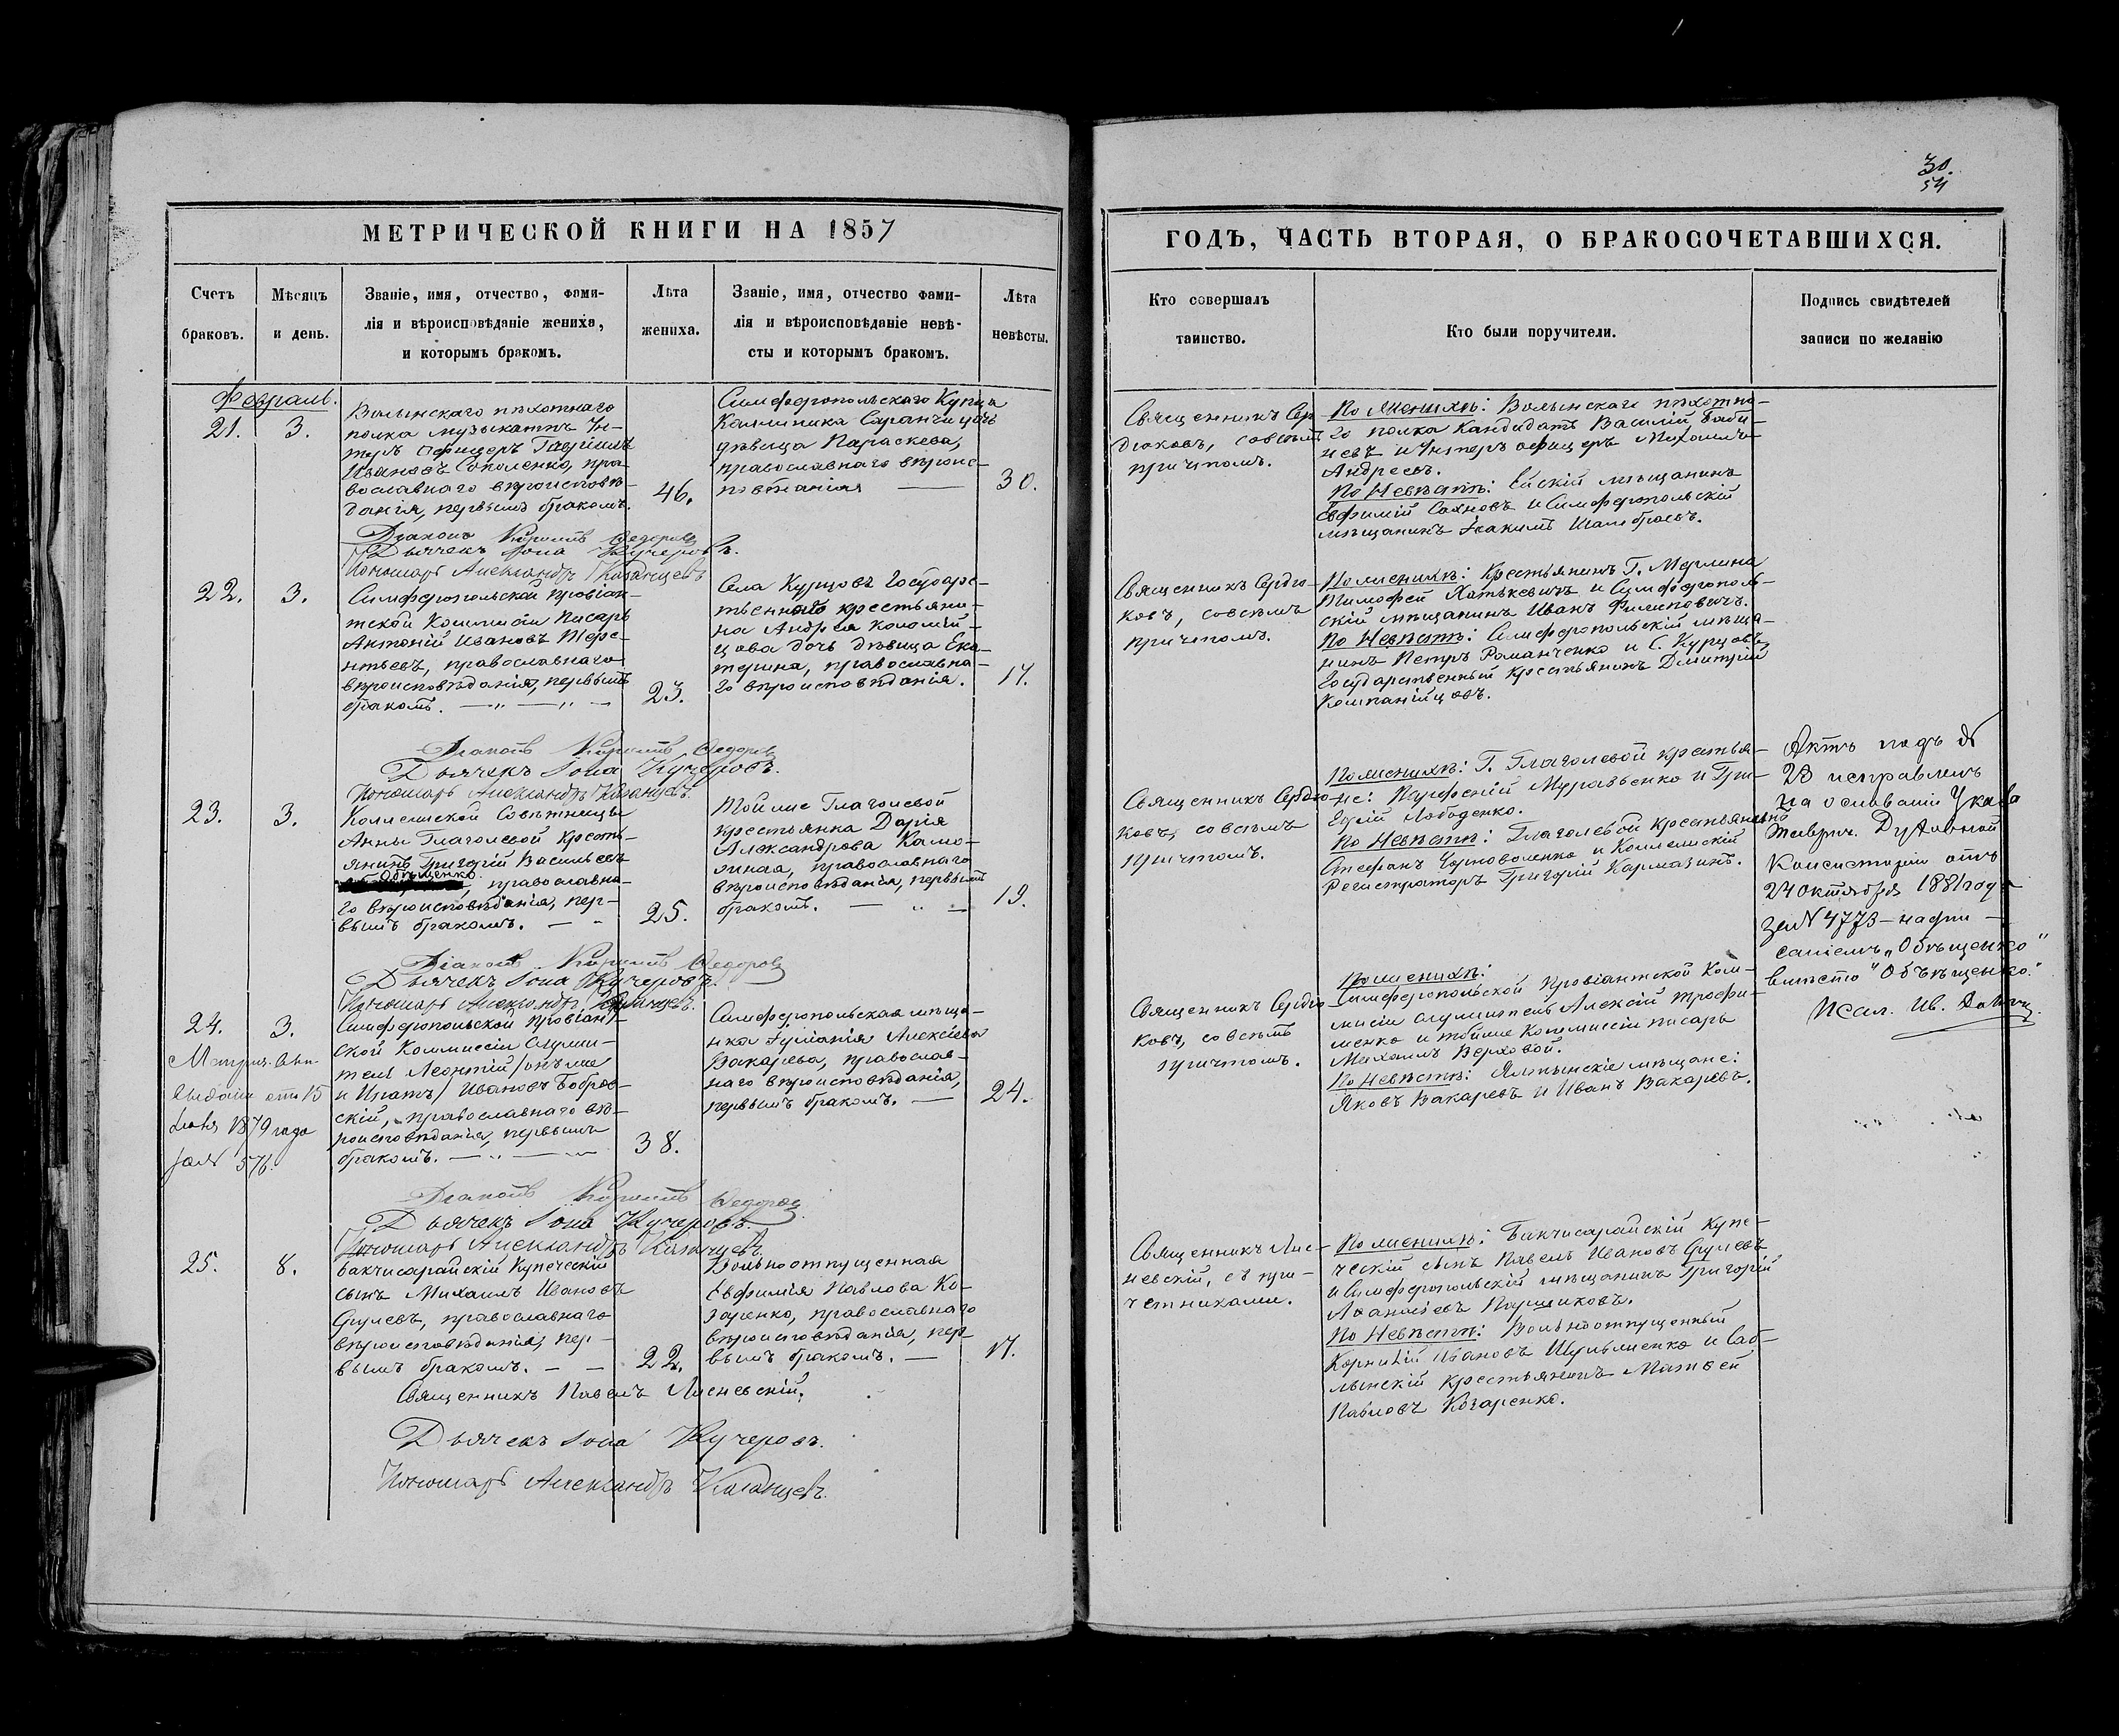 30.
54
МЕТРИЧЕСКОЙ КНИГИ НА 1857
ГОДЪ, ЧАСТЬ ВТОРАЯ, О БРАКОСОЧЕТАВШИХСЯ.
Счетъ
браковъ.
Мѣсяцъ
и день.
Званіе, имя, отчество, фами-
лія и вѣроисповѣданіе жениха,
и которымъ бракомъ.
Лѣта
жениха.
Званіе, имя, отчество фами-
лія и вѣроисповѣданіе невѣ-
сты и которымъ бракомъ.
Лѣта
невѣсты.
Кто совершалъ
таинство.
Кто были поручители.
Подпись свидѣтелей
записи по желанію
Февраль.
21.
3.
Волынскаго пѣхотнаго
полка музыкантъ Ун-
теръ офицеръ Гавріилъ
Ивановъ Соколенко, пра-
вославнаго вѣроисповѣ-
данія, первымъ бракомъ.
46.
Симферопольскаго Купца
Каллиника Саранчицова
дѣвица Параскева,
православнаго вѣроис-
повѣданія
30.
Священникъ Сер
дюковъ, совсѣмъ
причтомъ.
По Женихѣ: Волынскаго пѣхотна-
го полка Кандидатъ Василій Баби-
чевъ и Унтеръ офицеръ Михаилъ
Андреевъ.
По Невѣстѣ: Ейскій мѣщанинъ
Евфимій Сахновъ и Симферопольскій
мѣщанинъ Іоакимъ
Діаконъ Кириллъ Федоровъ
Дьячекъ Іона Кучеровъ.
Пономарь Александръ Казанцевъ
22.
3.
Симферопольской провіан-
тской Коммисіи Писарь
Антоній Ивановъ Тере-
нтьевъ, православнаго
вѣроисповѣданія, первымъ
бракомъ.
23.
Села Курцовъ Государс-
твеннаго крестьяни-
на Андрея Коломій-
цова дочь дѣвица Ека-
терина, православна-
го вѣроисповѣданія.
17.
Священникъ Сердю-
ковъ, совсѣмъ
причтомъ.
По женихѣ: Крестьянинъ Г. Мерлина
Тимофей Хатькевичъ и Симферополь-
скій мѣщанинъ Иванъ Филиповичъ.
По Невѣстѣ: Симферопольскій мѣща-
нинъ Петръ Романченко и С. Курцовъ
Государственный крестьянинъ Димитрій
Компанійцовъ.
Діаконъ Кириллъ Федоровъ
Дьячекъ Іона Кучеровъ.
Пономарь Александръ Казанцевъ.
23.
3.
Коллежской Совѣтницы
Анны Глаголевой кресть-
янинъ Григорій Васильевъ
Обѣщенко
, православна-
го вѣроисповѣданія, пер-
вымъ бракомъ.
25.
Той же Глаголевой
крестьянка Дарія
Александрова
православнаго
вѣроисповѣданія, первымъ
бракомъ.
19.
Священникъ Сердю-
ковъ, совсѣмъ
причтомъ.
По женихѣ: Г. Глаголевой крестья-
не: Парфеній Муравьенко и Гри-
горій Лободенко.
По Невѣстѣ: Глаголевой крестьянинъ
Стефанъ Черноволенко и Коллежскій
Регистраторъ Григорій Кармазинъ.
Актъ подъ №
23 исправленъ
на основаніи Указа
Таврич. Духовной
Консисторіи отъ
24 октября 1881 года
за № 4773 – надпи-
саніемъ „Обѣщенко"
вмѣсто
Псал. Ив.
Діаконъ Кириллъ Федоровъ
Дьячекъ Іона Кучеровъ.
Пономарь Александръ Казанцевъ.
24.
3.
Метрич. Свид.
выдано отъ 15
1879 года
за № 576.
Симферопольской провіант-
ской Коммиссіи служи-
тель Леонтій /онъ же
и Ипатъ/ Ивановъ Бобров-
скій, православнаго вѣ-
роисповѣданія, первымъ
бракомъ.
38.
Симферопольская мѣща-
нка Іуліанія Алексіева
Вакарева, православ-
наго вѣроисповѣданія,
первымъ бракомъ.
24.
Священникъ Сердю-
ковъ, совсѣмъ
причтомъ.
По женихѣ:
Симферопольской провіантской Ком-
мисіи служитель Алексій Трофи-
менко и тойже Коммиссіи писарь
Михаилъ Верховой.
По Невѣстѣ: Ялтынскіе мѣщане:
Яковъ Вакаревъ и Иванъ Вакаревъ.
Діаконъ Кириллъ Федоровъ
Дьячекъ Іона Кучеровъ.
Пономарь Александръ Казанцевъ.
25.
8.
Бакчисарайскій Купеческій
сынъ Михаилъ Ивановъ
православнаго
вѣроисповѣданія, пер-
вымъ бракомъ.
22.
Вольноотпущенная
Евфимія Павлова Ко-
заренко, православнаго
вѣроисповѣданія, пер-
вымъ бракомъ.
17.
Священникъ Лис-
невскій, съ при-
четниками.
По женихѣ: Бакчисарайскій Купе-
ческій сынъ Павелъ Ивановъ
и Симферопольскій мѣщанинъ Григорій
Афанасіевъ Паршиковъ.
По Невѣстѣ: Вольноотпущенный
Корнилій Ивановъ и Саб-
лынскій крестьянинъ Матвей
Павловъ Козаренко.
Священникъ Павелъ Лисневскій.
Дьячекъ Іона Кучеровъ.
Пономарь Александръ Казанцевъ.